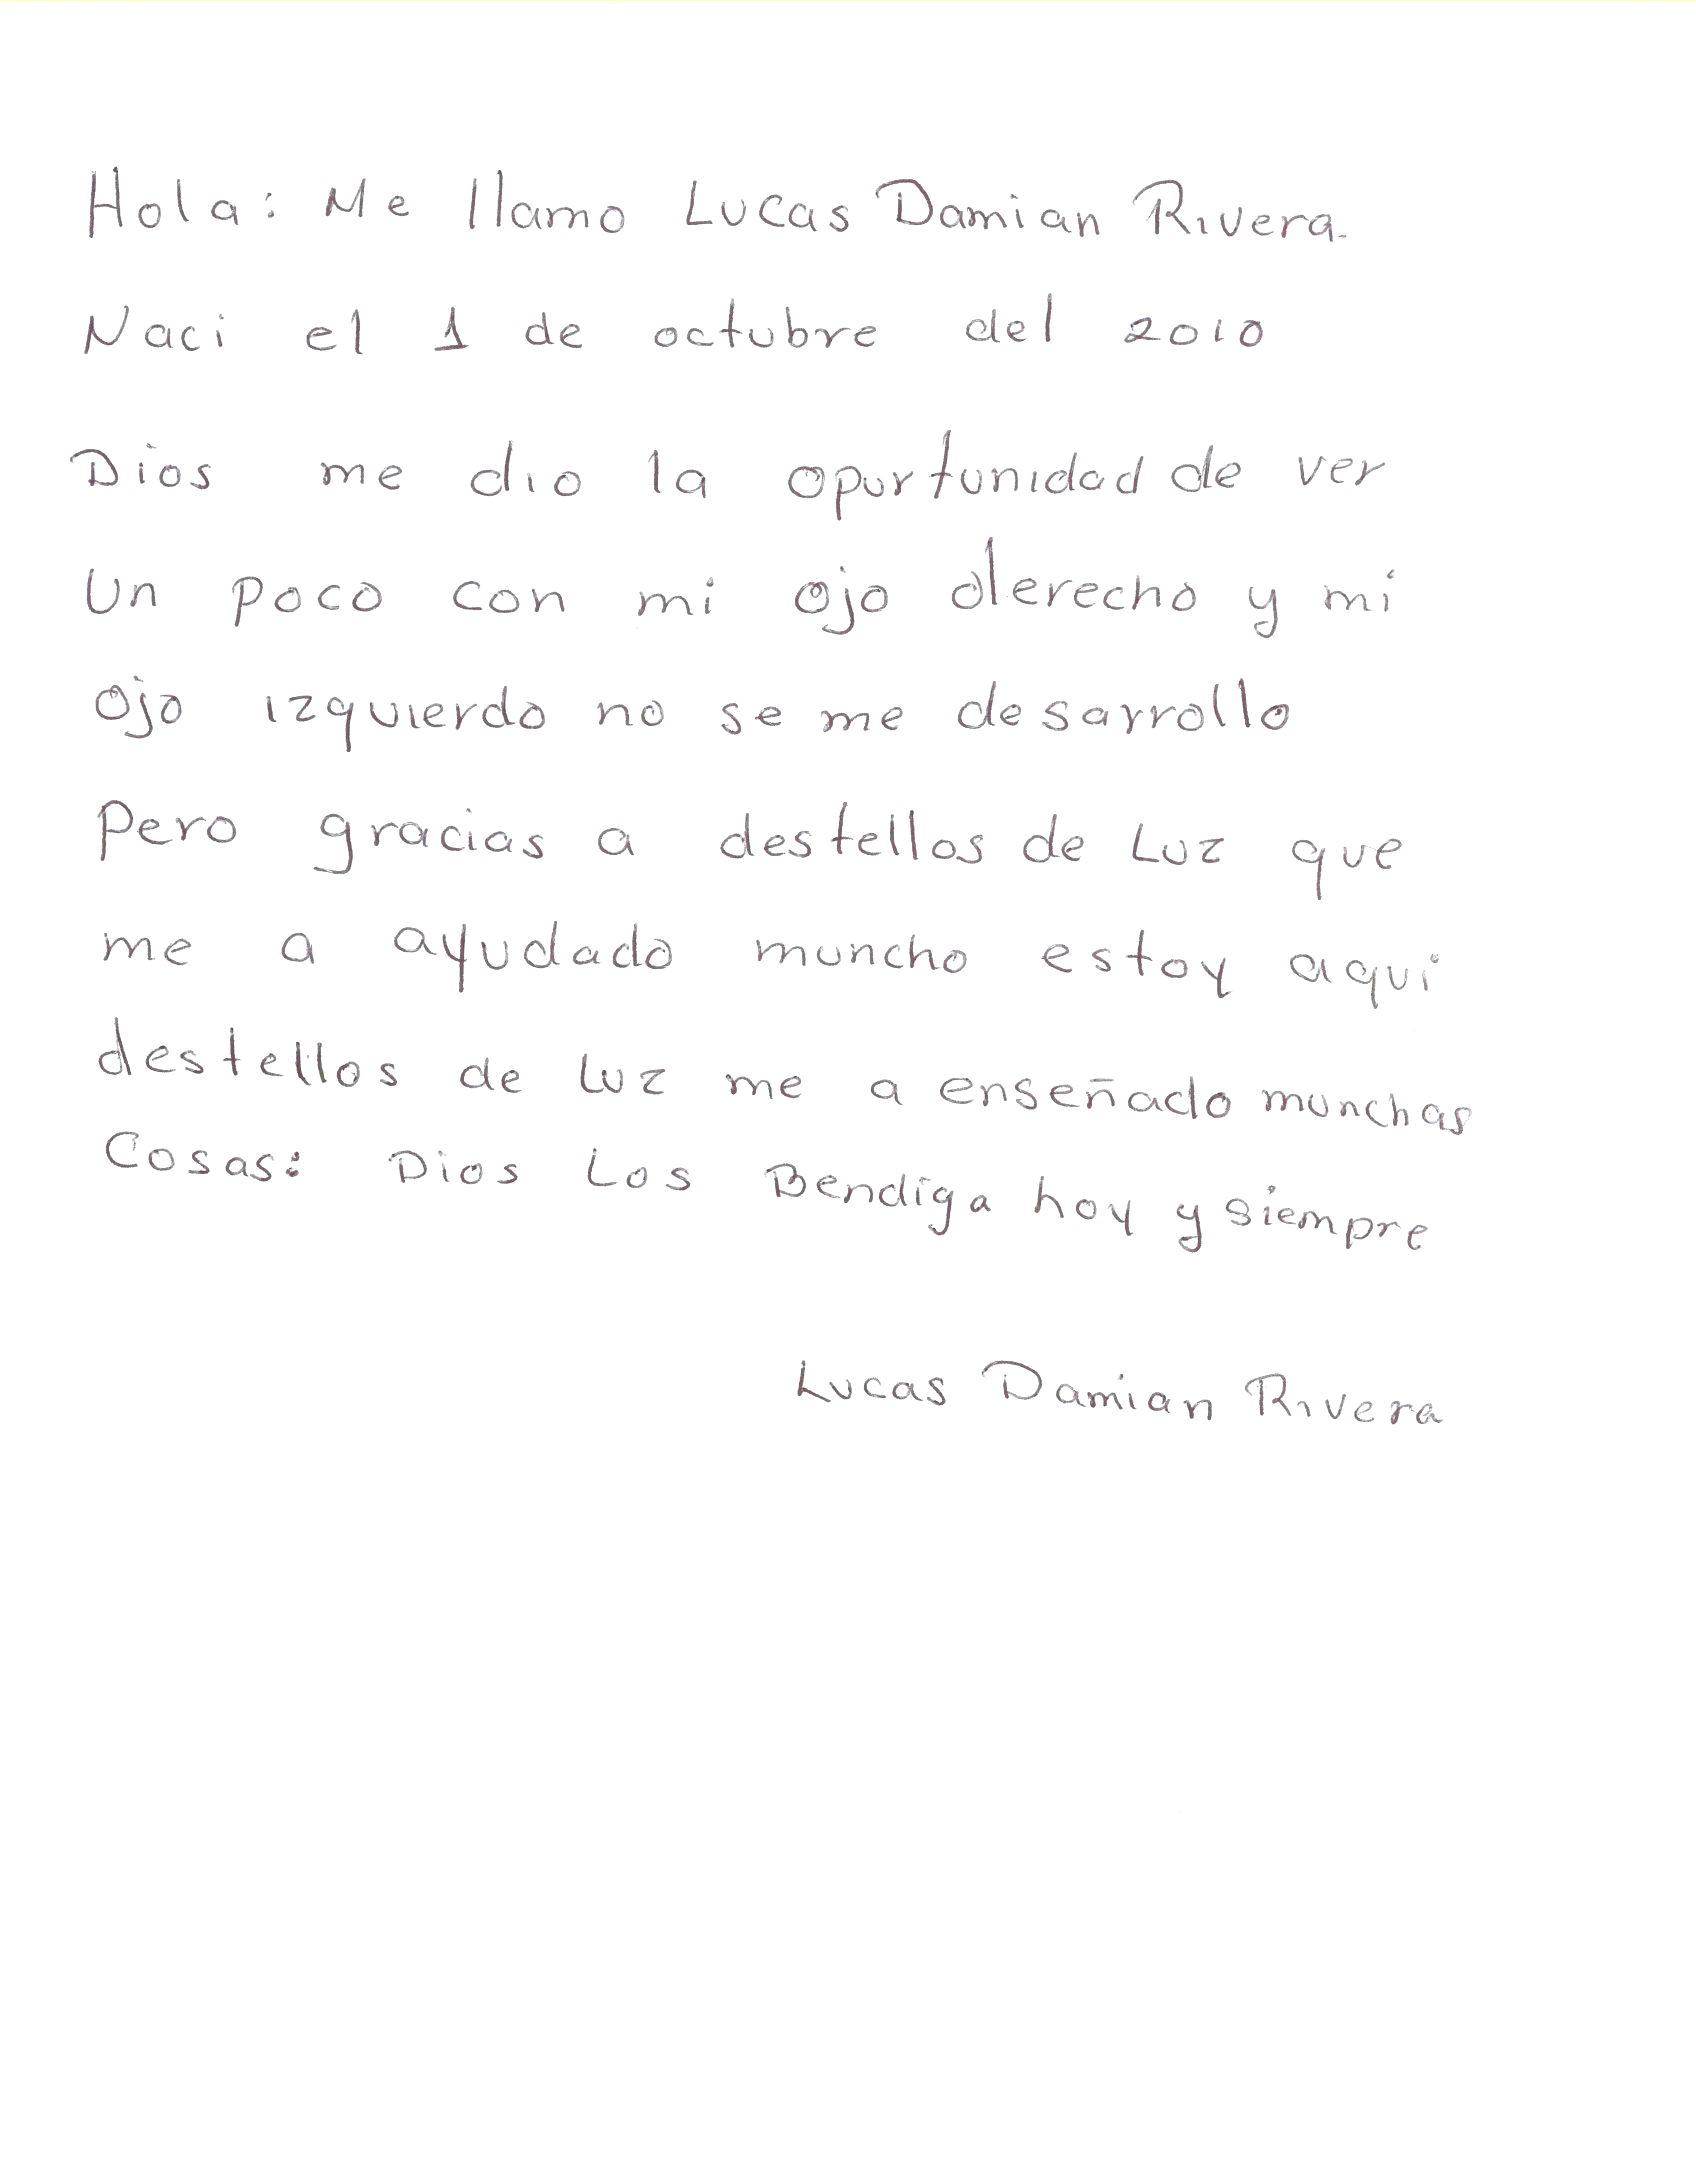 Hola: Me llamo Lucas Damian Rivera.
Naci el 1 de octubre del 2010
Dios me dio la oportunidad de ver
un poco con mi ojo derecho y mi
ojo izquierdo no se me desarrollo
pero gracias a destellos de Luz que
me a ayudado muncho estoy aqui
destellos de luz me a enseñado munchas
Cosas: Dios Los Bendiga hoy y siempre
Lucas Damian Rivera